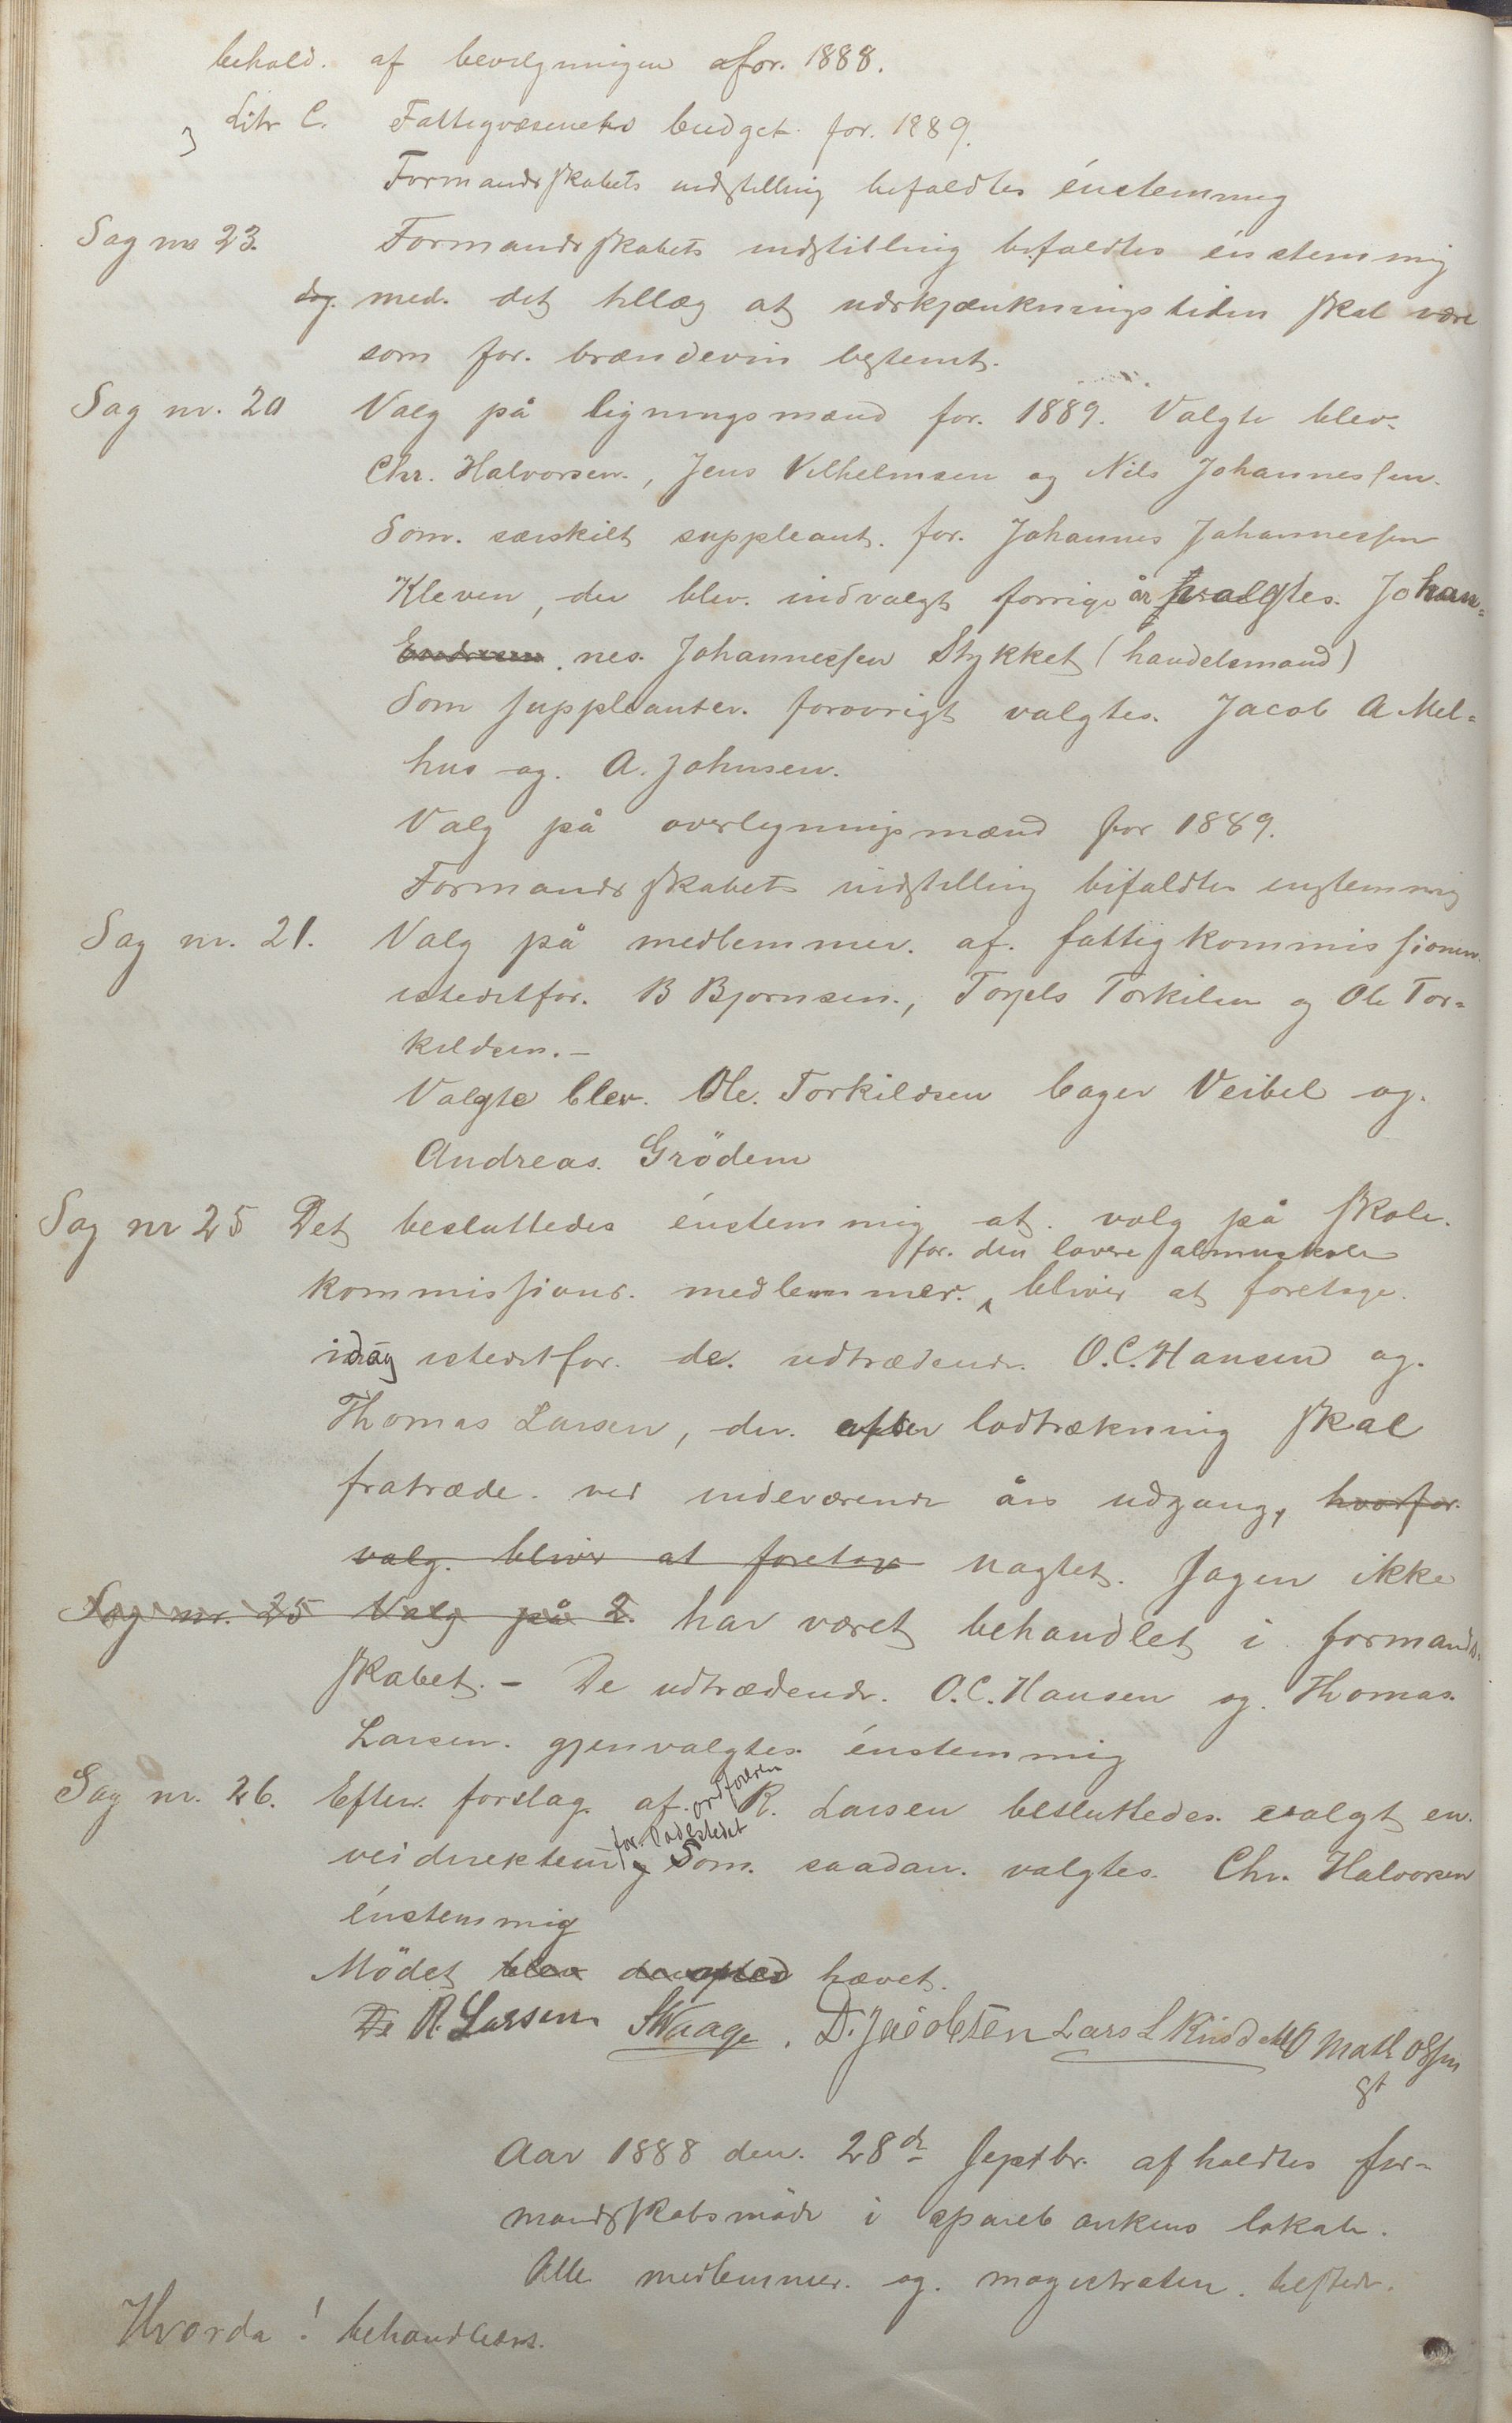 behold. af bevilgningen afor. 1888.
Litr C. Fattigvæsenets budget for. 1889.
Formandsskabets indstilling bifaldtes énstemmig
Sag nr 23. Formandsskabets indstilling bifaldtes énstemmig
dog. med. det tillæg at udskjænkningstiden skal være
som for. brændevin bestemt.
Sag nr. 20 Valg på ligningsmænd for. 1889. Valgte blev.
Chr. Halvorsen., Jens Vilhelmsen og Nils Johannessen.
Som. særskilt suppleant. for. Johannes Johannessen
Kleven, der blev. indvalgt forrige år valgtes. Johan-
nes. Johannessen Stykket (handelsmand)
Som suppleanter. forøvrigt valgtes. Jacob A Mel-
hus og. A. Johnsen.
Valg på overligningsmænd for 1889.
Formandsskabets indstilling bifaldtes enstemmig
Sag nr. 21. Valg på medlemmer. af. fattigkommissionen.
istedetfor. B Bjørnsen., Torjels Torkilsen og Ole Tor-
kildsen. –
Valgte blev. Ole. Torkildsen bager Veibel og.
Andreas. Grödem
Sag nr 25 Det besluttedes énstemmig at. valg på skole.
for. den lavere almueskole
kommissions. medlemmer. bliver at foretage.
idag istedetfor. de. udtrædende. O.C. Hansen og.
Thomas Larsen, der. efter lodtrækning skal
fratræde. ved indeværende års udgang, hvorfor.
valg. bliver at foretage uagtet. sagen ikke
Sag nr. 25 Valg på 2. har været behandlet i formands-
skabet. – De udtrædende. O.C. Hansen og. Thomas.
Larsen. gjenvalgtes. énstemmig
Sag nr. 26. Efter. forslag. af. ordføreren R. Larsen besluttedes. valgt en.
for. Ladestedet
veidirekteur og Som. saadan. valgtes. Chr. Halvorsen
énstemmig
Mödet blev derefter hævet.
R. Larsen SWaage. D. Jacobsen Lars L Math Olsen
Aar 1888 den. 28de Septbr. afholdtes for-
mandskabsmöde i sparebankens lokale.
Alle medlemmer. og. magistraten. tilstede.
Hvorda! behandledes.